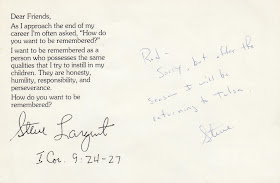 Dear Friends,
As I approach the end of my
career I'm often asked, "How do
you want to be remembered?"
I want to be remembered as a
person who possesses the same
qualities that I try to instill in my
children. They are honesty,
humility, responsibility, and
perseverance.
How do you want to be
remembered?
Steve Largent
I Cor. 9:24-27
Rod-
Sorry, but after the
season I will be
returning to Tulsa.
Steve